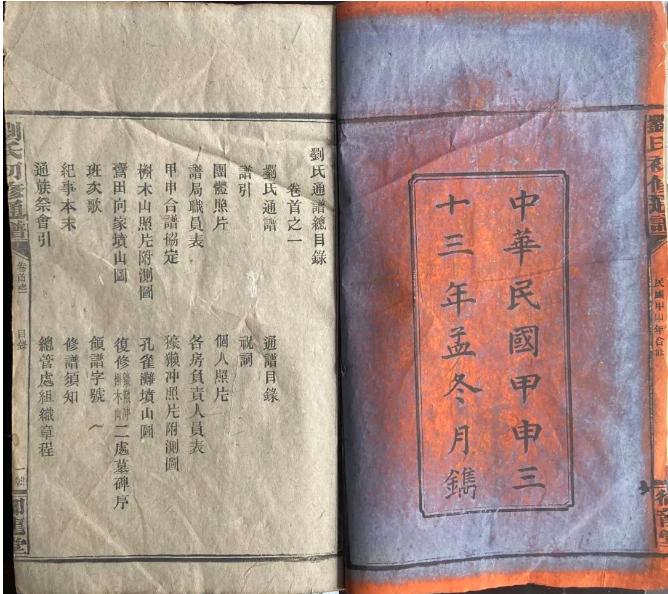 中華民國甲申三
十三年孟冬月鐫
劉氏通譜總目錄
卷首之一
劉氏通譜 通譜目錄
譜引 祝詞
團體照片 個人照片
譜局職員表 各房負責人員表
甲申合譜協定 獺冲照片附測圖
槲木山照片附測圖 孔雀灘墳山圖
田向家墳山圖 復修 二處墓碑序
班次歌 領譜字號
紀事本末 修譜須知
通族祭會引 總管處組織章程
劉氏初修通譜 卷首之一 目錄 一